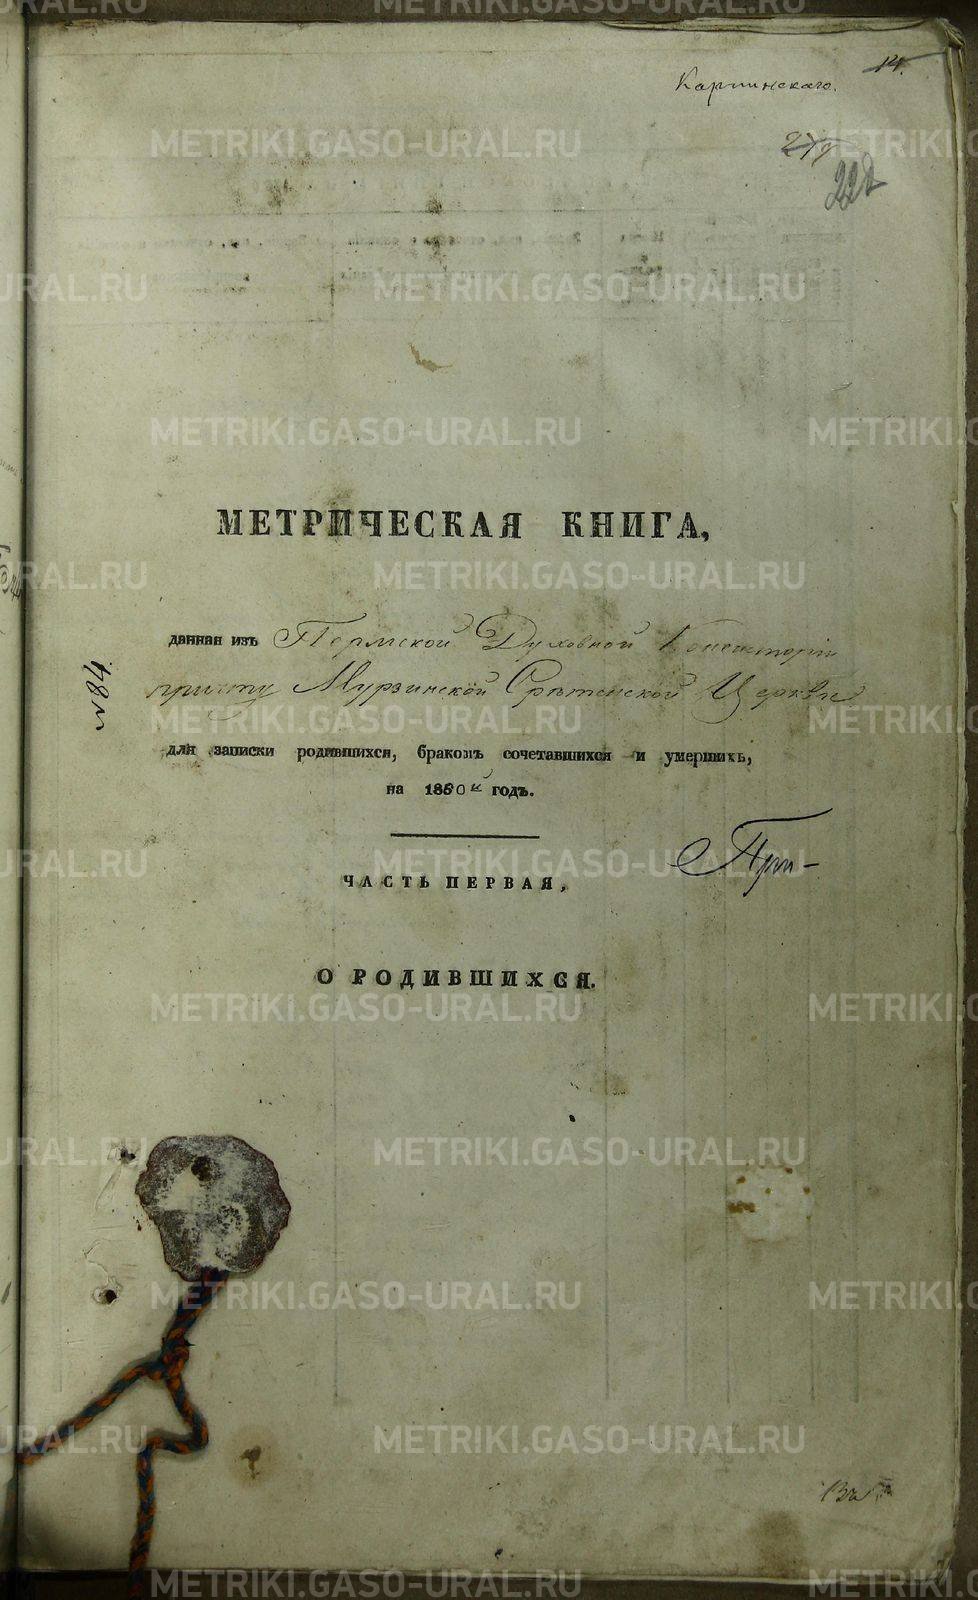 14.
Карпинскаго.
279
222
МЕТРИЧЕСКАЯ КНИГА,
данная изъ Пермской Духовной Консисторіи
причту Мурзинской Срѣтенской Церкви
№ 84
для записки родившихся, бракомъ сочетавшихся и умершихъ,
на 1860й годъ.
При-
ЧАСТЬ ПЕРВАЯ,
О РОДИВШИХСЯ.
METRIKI.GASO-URAL.RU